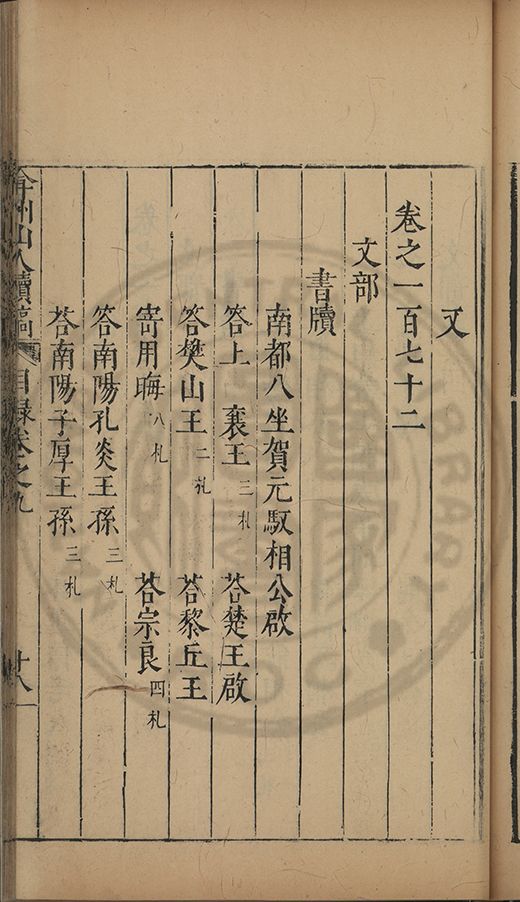 又
卷之一百七十二
文部
書牘
南都八坐賀元馭相公啟
答上 襄王三札 荅楚王啟
答樊山王二札 荅黎丘王
寄用晦八札 荅宗良四札
答南陽孔炎王孫三札
荅南陽子厚王孫三札
弇州山人續稿 目録卷之九 廿八